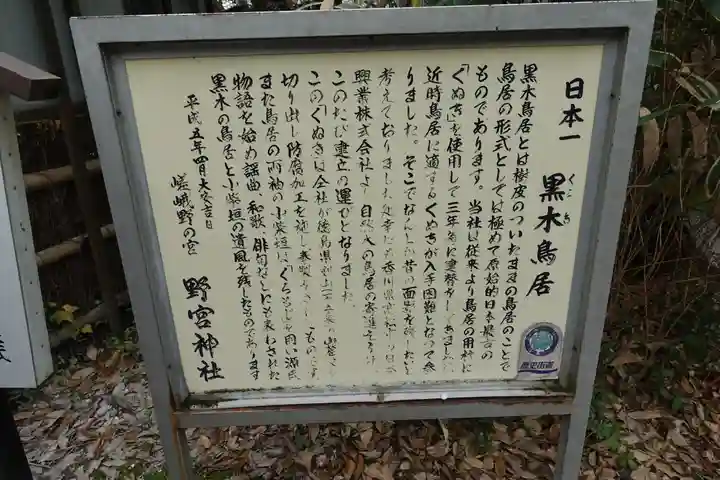 日本一
黒木鳥居
くろき
黒木鳥居とは樹皮のついたままの鳥居のことで
鳥居の形式としては極めて原始的日本最古の
ものであります。当社は従来より鳥居の用材に
「くぬぎ」を使用して三年毎に建替をして
近時鳥居に適するくぬぎが入手困難となって参
りました。そこでなんとか昔の面影を残したいと
考えて居りました処幸にも香川県高松市の
興業株式会社より自然木の鳥居の寄進を
このたび建立の運びとなりました。
このくぬぎは仝社が徳島県剣山
切り出し防腐加工を施し奉製
また鳥居の両袖の小柴垣はくろもじを用い源氏
物語を始め謡曲、和歌、俳句などにも表わされた
黒木の鳥居と小柴垣の遺風を残したものであります
平成五年四月大安吉日
嵯峨野の宮
野宮神社
歴史街道